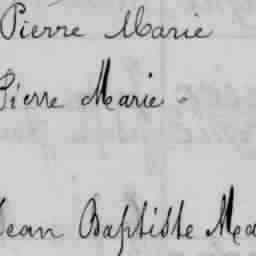 Pierre Marie
Pierre Marie
Jean Baptiste Ma